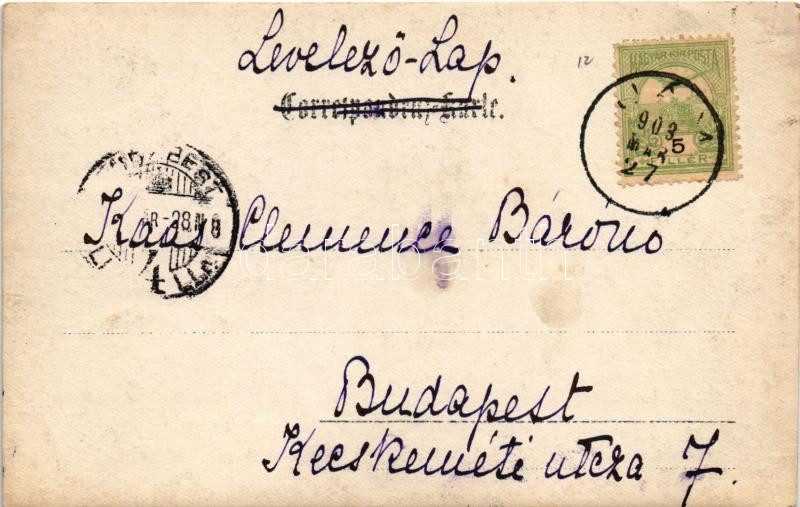 Levelező-Lap.
12
Correspondenz-Karte.
MAGYAR KIR. POSTA
5
FILLÉR
903
MAR
27
BUDAPEST
28
Kaas Clemence Bárónő
darabanth
Budapest
Kecskeméti utcza 7.